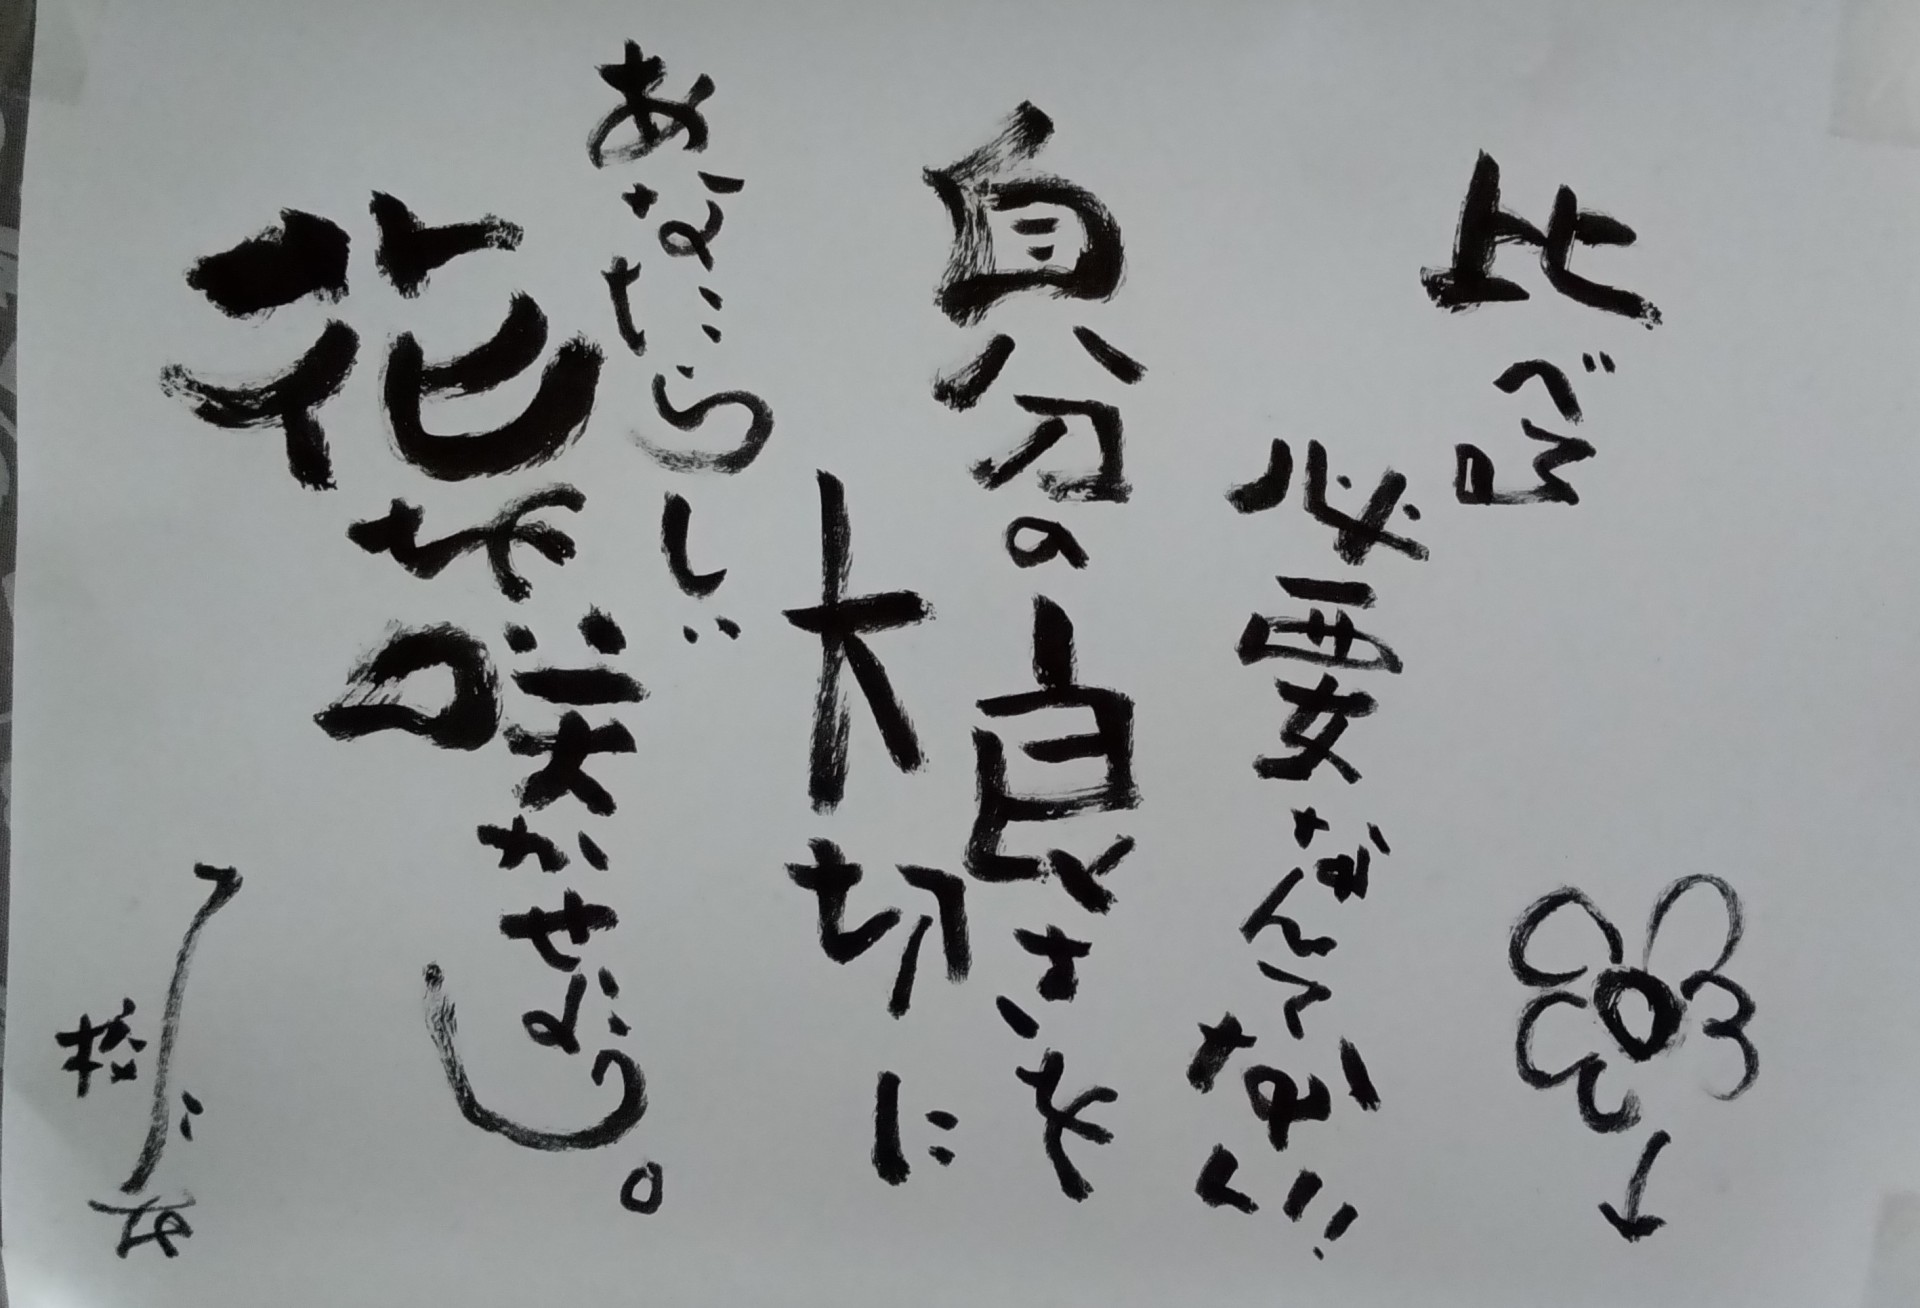 比べる
必要なんてない!!
自分の良さを
大切に
あなたらしい
花を咲かせなよう。